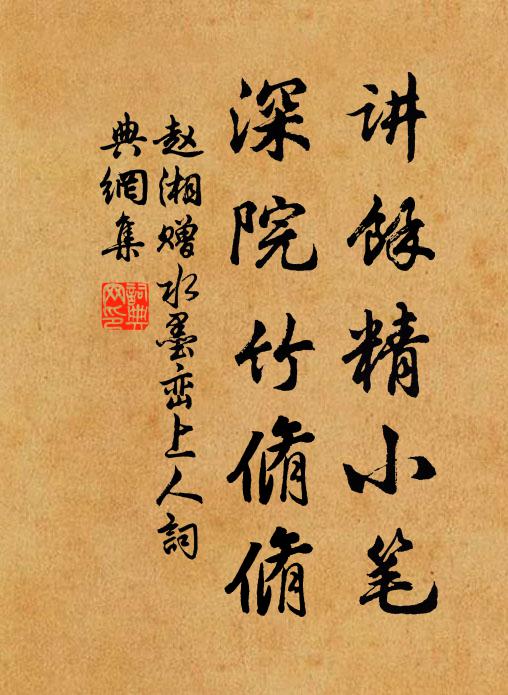 讲馀精小笔
深院竹脩脩
赵湘赠水墨峦上人詞
典網集
詞典网印